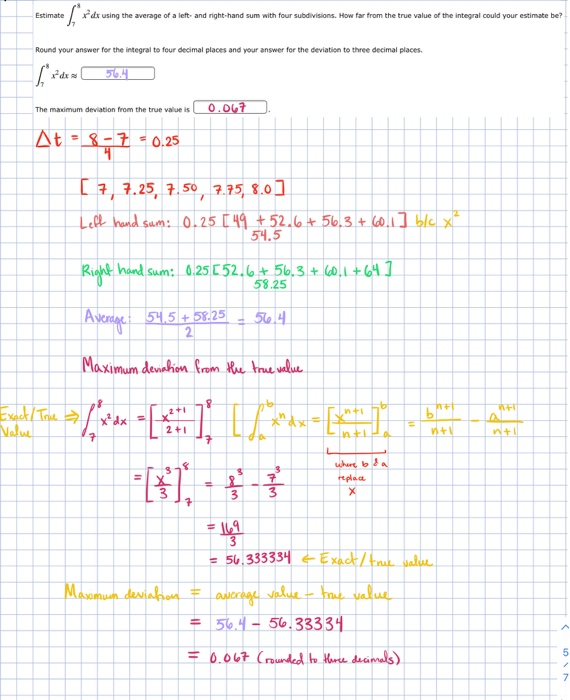 Estimate ∫₇⁸ x² dx using the average of a left- and right-hand sum with four subdivisions. How far from the true value of the integral could your estimate be?
Round your answer for the integral to four decimal places and your answer for the deviation to three decimal places.
∫₇⁸ x² dx ≈ 56.4
The maximum deviation from the true value is 0.067.
Δt = (8 - 7)/4 = 0.25
[7, 7.25, 7.50, 7.75, 8.0]
Left hand sum: 0.25 [49 + 52.6 + 56.3 + 60.1] b/c x²
54.5
Right hand sum: 0.25 [52.6 + 56.3 + 60.1 + 64]
58.25
Average: (54.5 + 58.25)/2 = 56.4
Maximum deviation from the true value
Exact/True Value ⇒ ∫₇⁸ x² dx = [x²⁺¹/(2+1)]₇⁸ [∫ₐᵇ xⁿ dx = [xⁿ⁺¹/(n+1)]ₐᵇ = bⁿ⁺¹/(n+1) - aⁿ⁺¹/(n+1)
where b & a replace x
= [x³/3]₇⁸ = 8³/3 - 7³/3
= 169/3
= 56.333334 ← Exact/true value
Maximum deviation = average value - true value
= 56.4 - 56.33334
= 0.067 (rounded to three decimals)
5
7